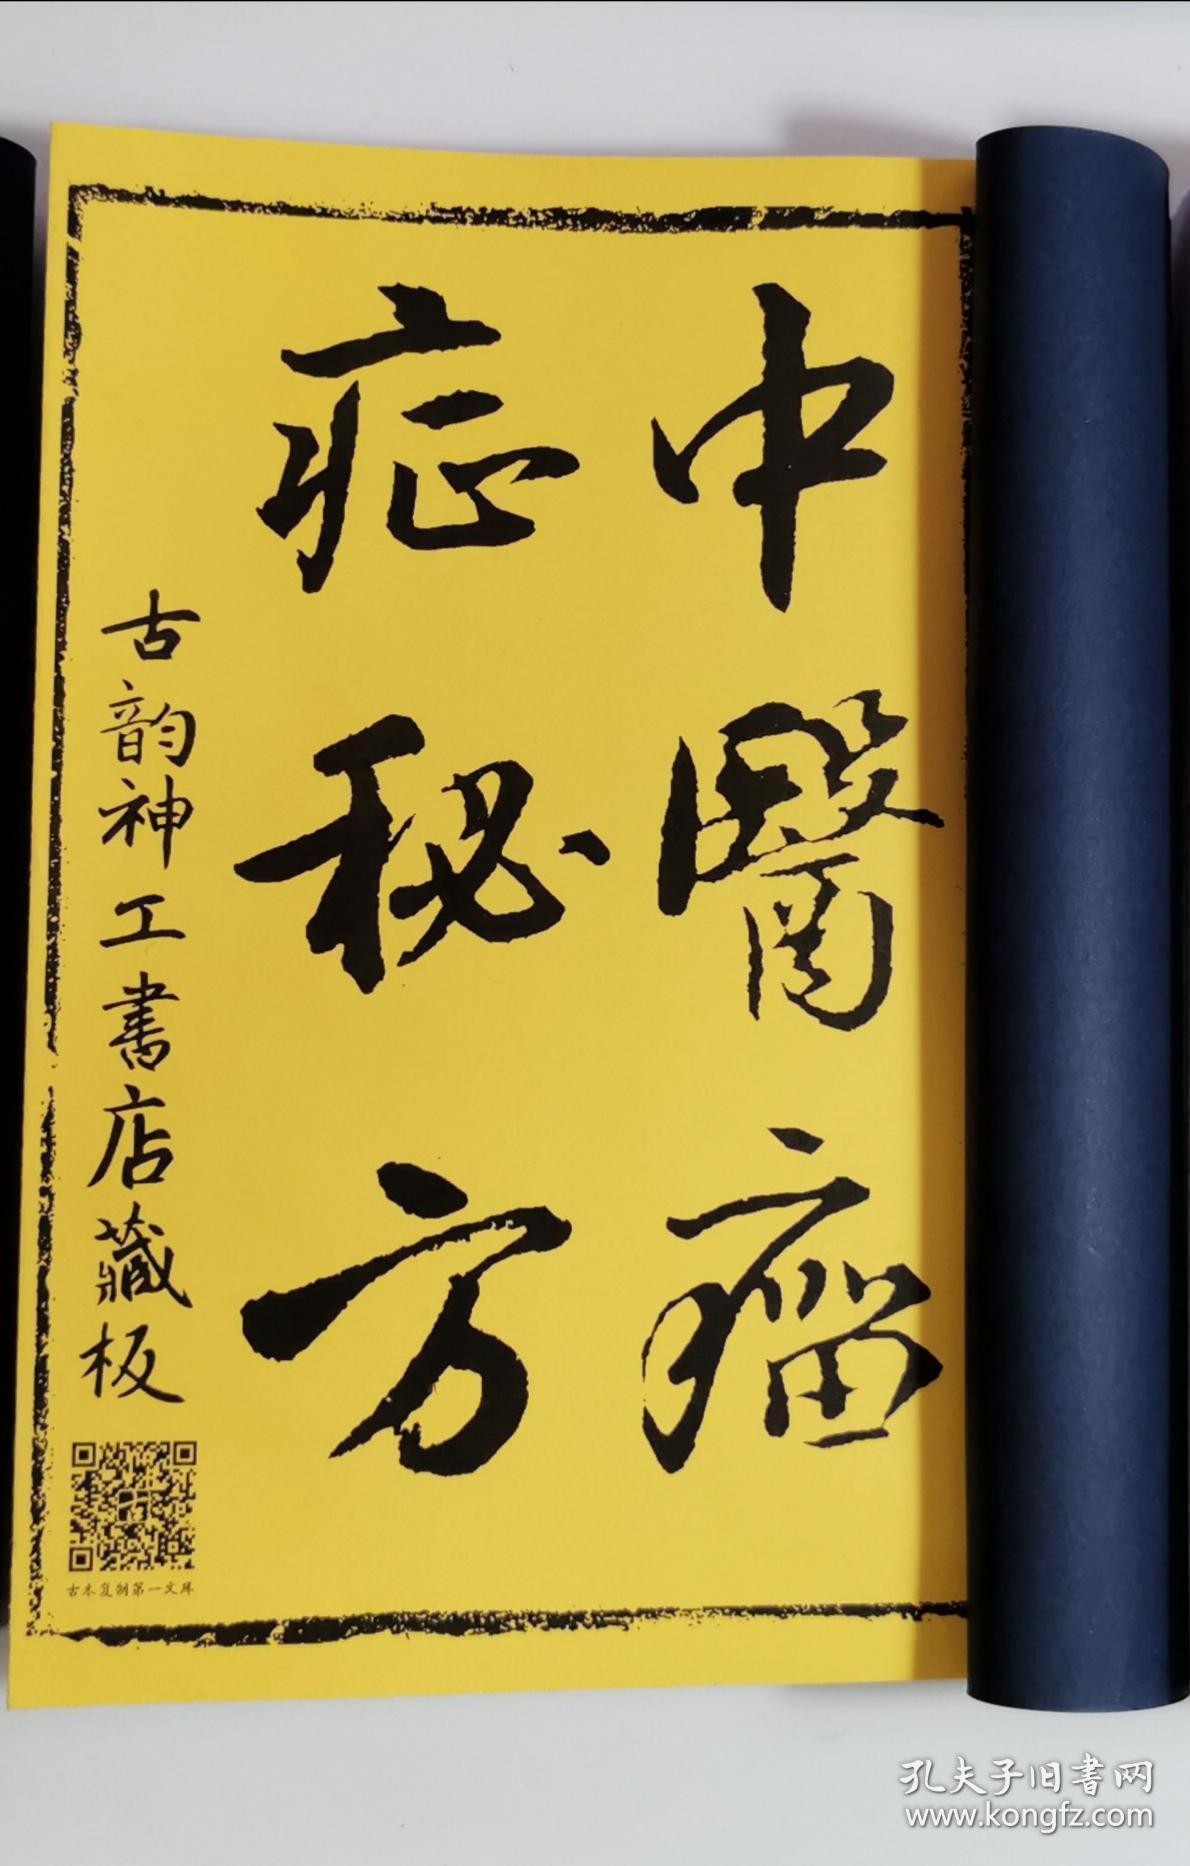 中醫瘤
症秘方
古韵神工書店藏板
古本复制第一文库
孔夫子旧書网
www.kongfz.com